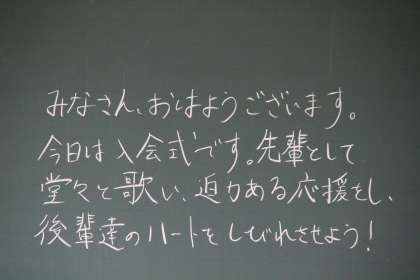 みなさん、おはようございます。
今日は入会式です。先輩として
堂々と歌い、迫力ある応援をし、
後輩達のハートをしびれさせよう!